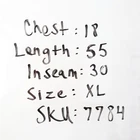 Chest: 18
Length: 55
Inseam: 30
Size: XL
SKU: 7784